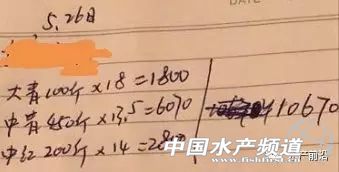 5.26日
DATE
大青100斤×18=1800
中青450斤×13.5=6070
中红200斤×14=2800
10670
中国水产频道
www.fishfirst.cn
产前沿